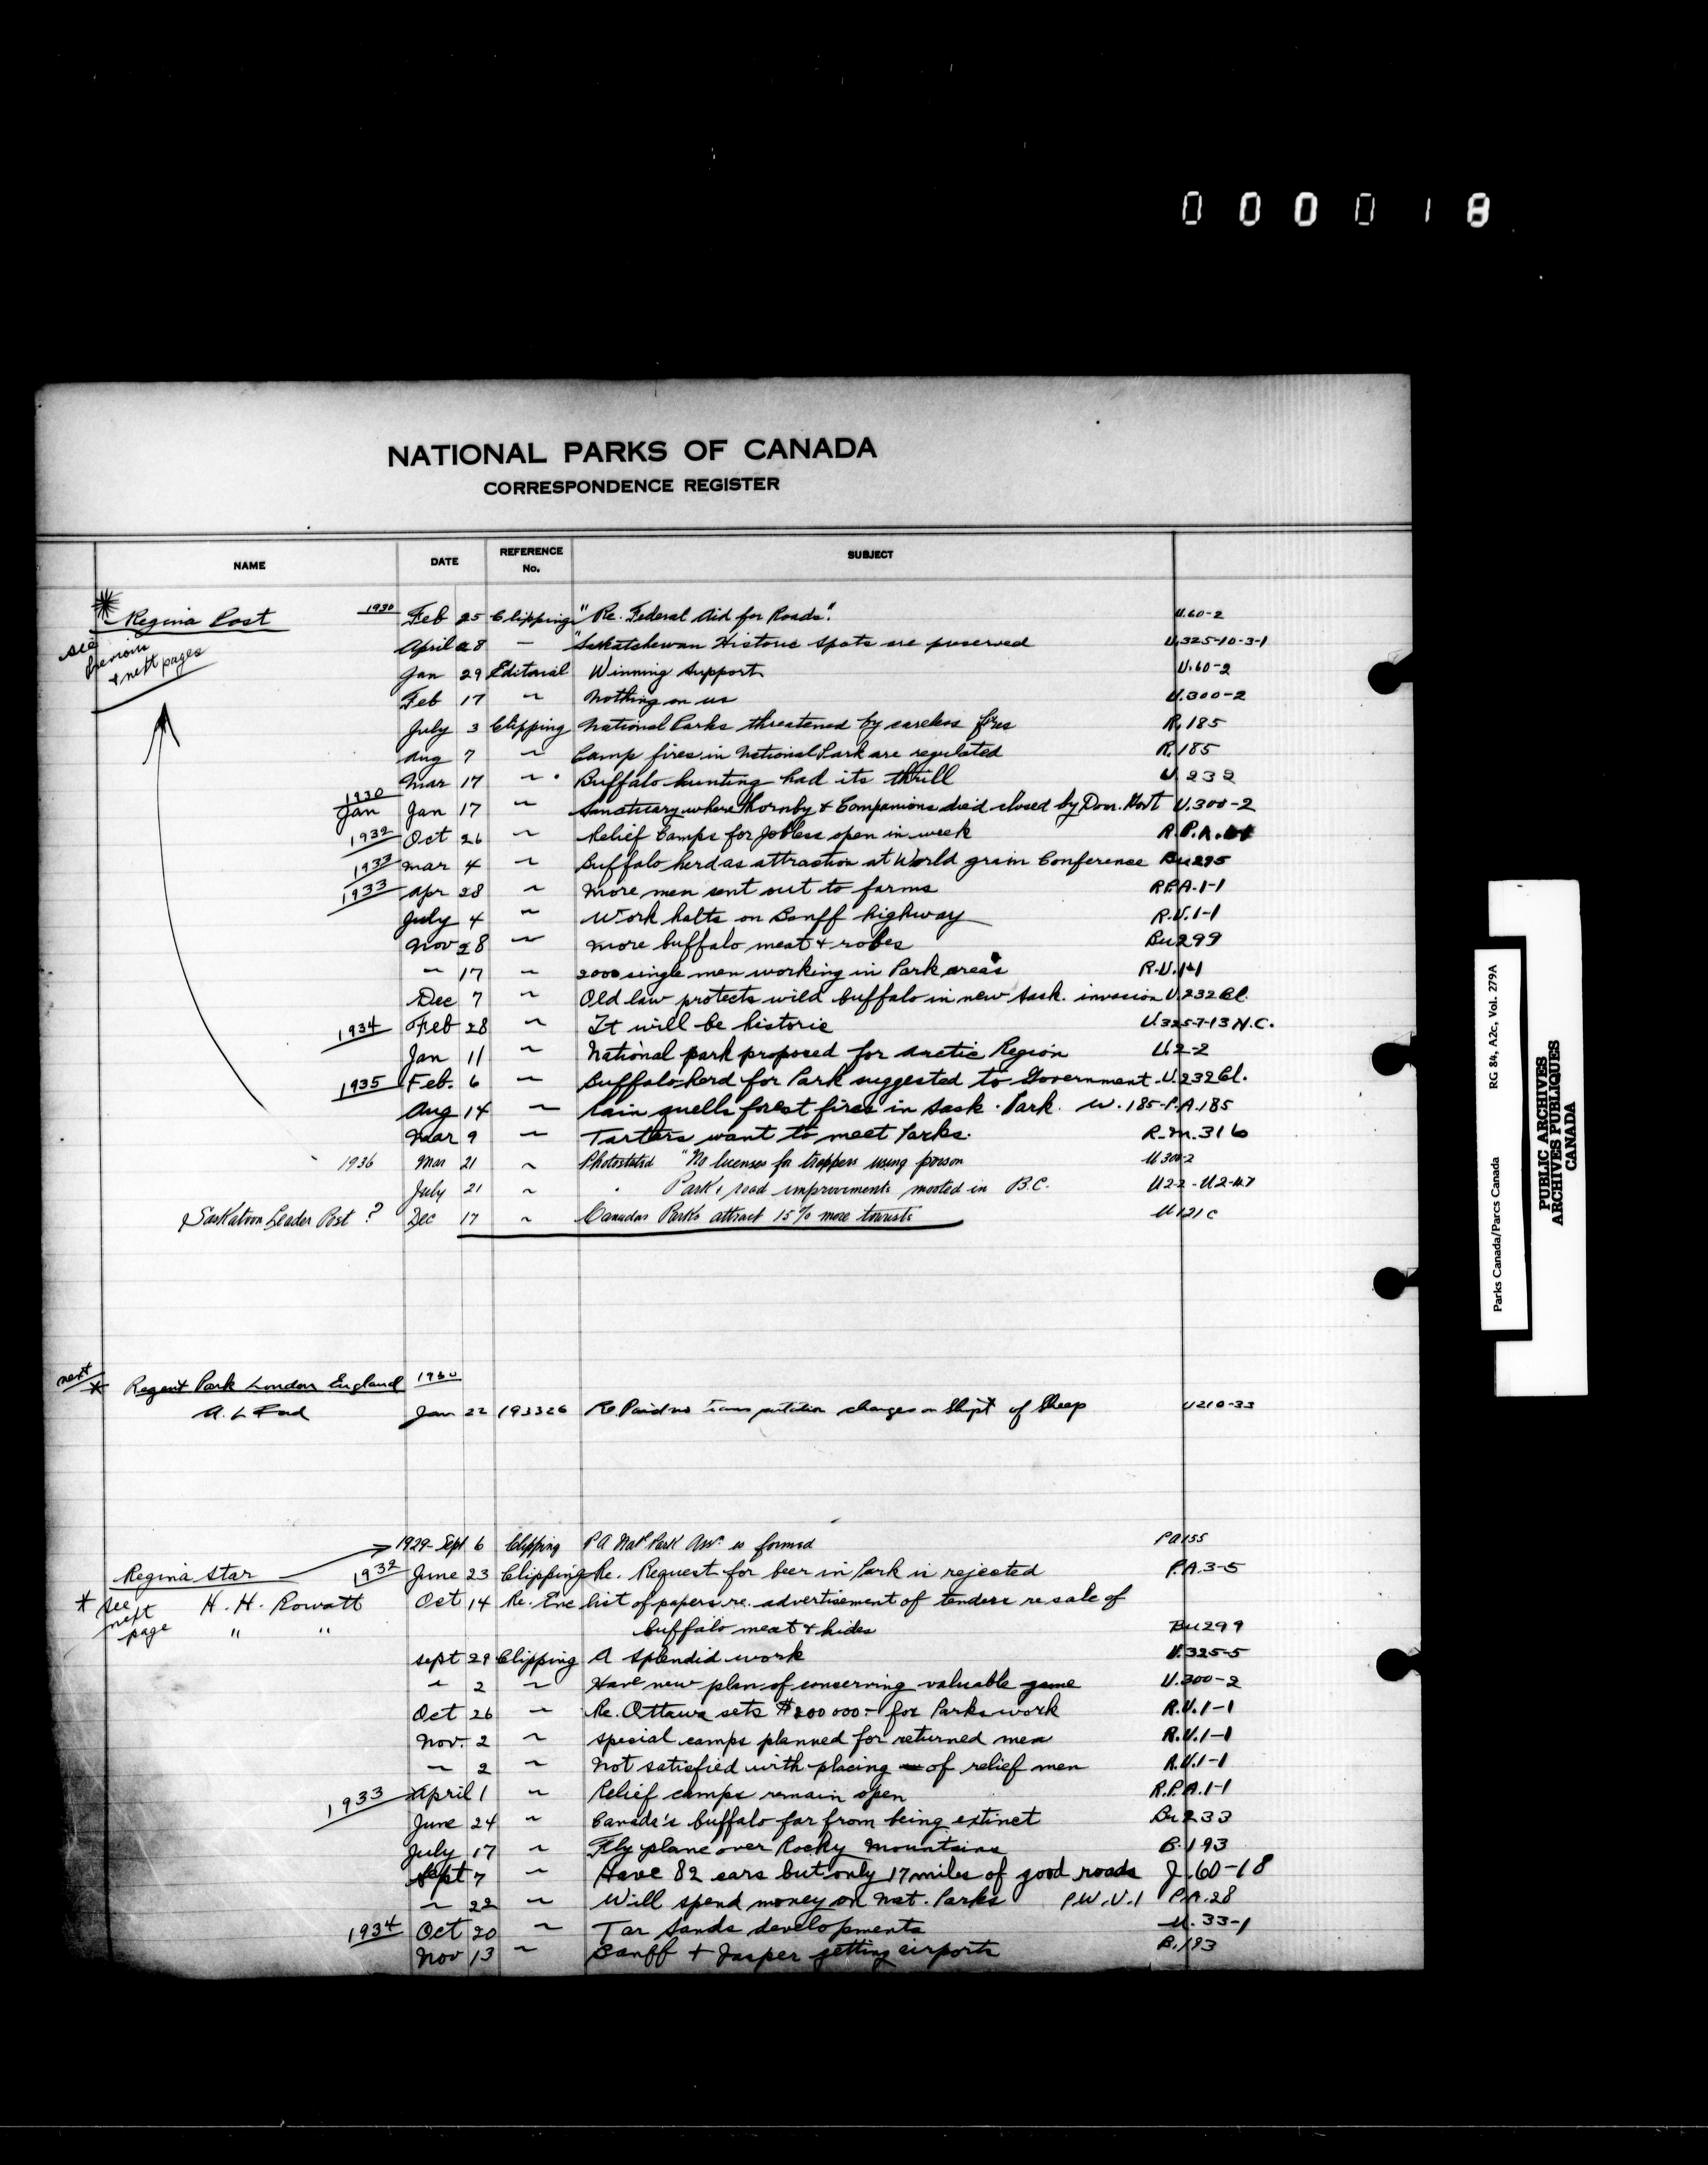 0 0 0 0 1 8
NATIONAL PARKS OF CANADA
CORRESPONDENCE REGISTER
NAME DATE REFERENCE No. SUBJECT
Regina Post 1930 Feb 25 Clipping "Re. Federal Aid for Roads". U.60-2
see previous & next pages
April 28 — "Saskatchewan Historic spots are preserved U.325-10-3-1
Jan 29 Editorial Winning Support U.60-2
Feb 17 ~ Nothing on us U.300-2
July 3 Clipping National Parks threatened by careless fires R.185
Aug 7 ~ Camp fires in National Park are regulated R.185
Mar 17 ~ Buffalo hunting had its thrill U.232
1930 Jan Jan 17 ~ Sanctuary where Hornby & Companions died closed by Dom. Govt U.300-2
1932 Oct 26 ~ Relief Camps for Jobless open in week R.P.A.
1933 Mar 4 ~ Buffalo herd as attraction at World grain Conference Bu295
1933 Apr 28 ~ More men sent out to farms R.P.A.1-1
July 4 ~ Work halts on Banff highway R.U.1-1
Nov 28 ~ More buffalo meat & robes Bu299
~ 17 ~ 2000 single men working in Park areas R.U.1-1
Dec 7 ~ Old law protects wild buffalo in new Sask. invasion U.232Bl.
1934 Feb 28 ~ It will be historic U.325-7-13 N.C.
Jan 11 ~ National park proposed for Arctic Region U.2-2
1935 Feb. 6 ~ Buffalo herd for Park suggested to Government U.232Bl.
Aug 14 ~ Rain quells forest fires in Sask. Park. W.185-P.A.185
Mar 9 ~ Tarters want to meet Parks. R.M.316
1936 Mar 21 ~ Photostated "No licenses for trappers using poison U300-2
July 21 ~ Parks road improvements mooted in B.C. U2-2-U2-47
Saskatoon Leader Post ? Dec 17 ~ Canadas Parks attract 15% more tourists U121C
next
* Regent Park London England 1930
Jan 22 193326 Re. charges on Shipt of Sheep U210-33
1929 Sept 6 Clipping PA Natl Park Assn. is formed PA155
Regina Star 1932 June 23 Clipping Re. Request for beer in Park is rejected P.A.3-5
* see next page H. H. Rowatt Oct 14 Re. Enc list of papers re. advertisement of tenders re sale of
" " buffalo meat & hides Bu299
Sept 29 Clipping A splendid work U.325-5
~ 2 ~ Have new plan of conserving valuable game U.300-2
Oct 26 ~ Re. Ottawa sets $200 000- for Parks work R.U.1-1
Nov. 2 ~ Special camps planned for returned men R.U.1-1
~ 2 ~ Not satisfied with placing of relief men R.U.1-1
1933 April 1 ~ Relief camps remain open R.P.A.1-1
June 24 ~ Canada's buffalo far from being extinct Bu233
July 17 ~ Fly plane over Rocky Mountains B.193
Sept 7 ~ Have 82 cars but only 17 miles of good roads J.60-18
~ 22 ~ Will spend money on Nat. Parks P.W.V.1 P.A.28
1934 Oct 20 ~ Tar Sands developments U.33-1
Nov 13 ~ Banff & Jasper getting airports B.193
Parks Canada/Parcs Canada RG 84, A2c, Vol. 279A
PUBLIC ARCHIVES
ARCHIVES PUBLIQUES
CANADA